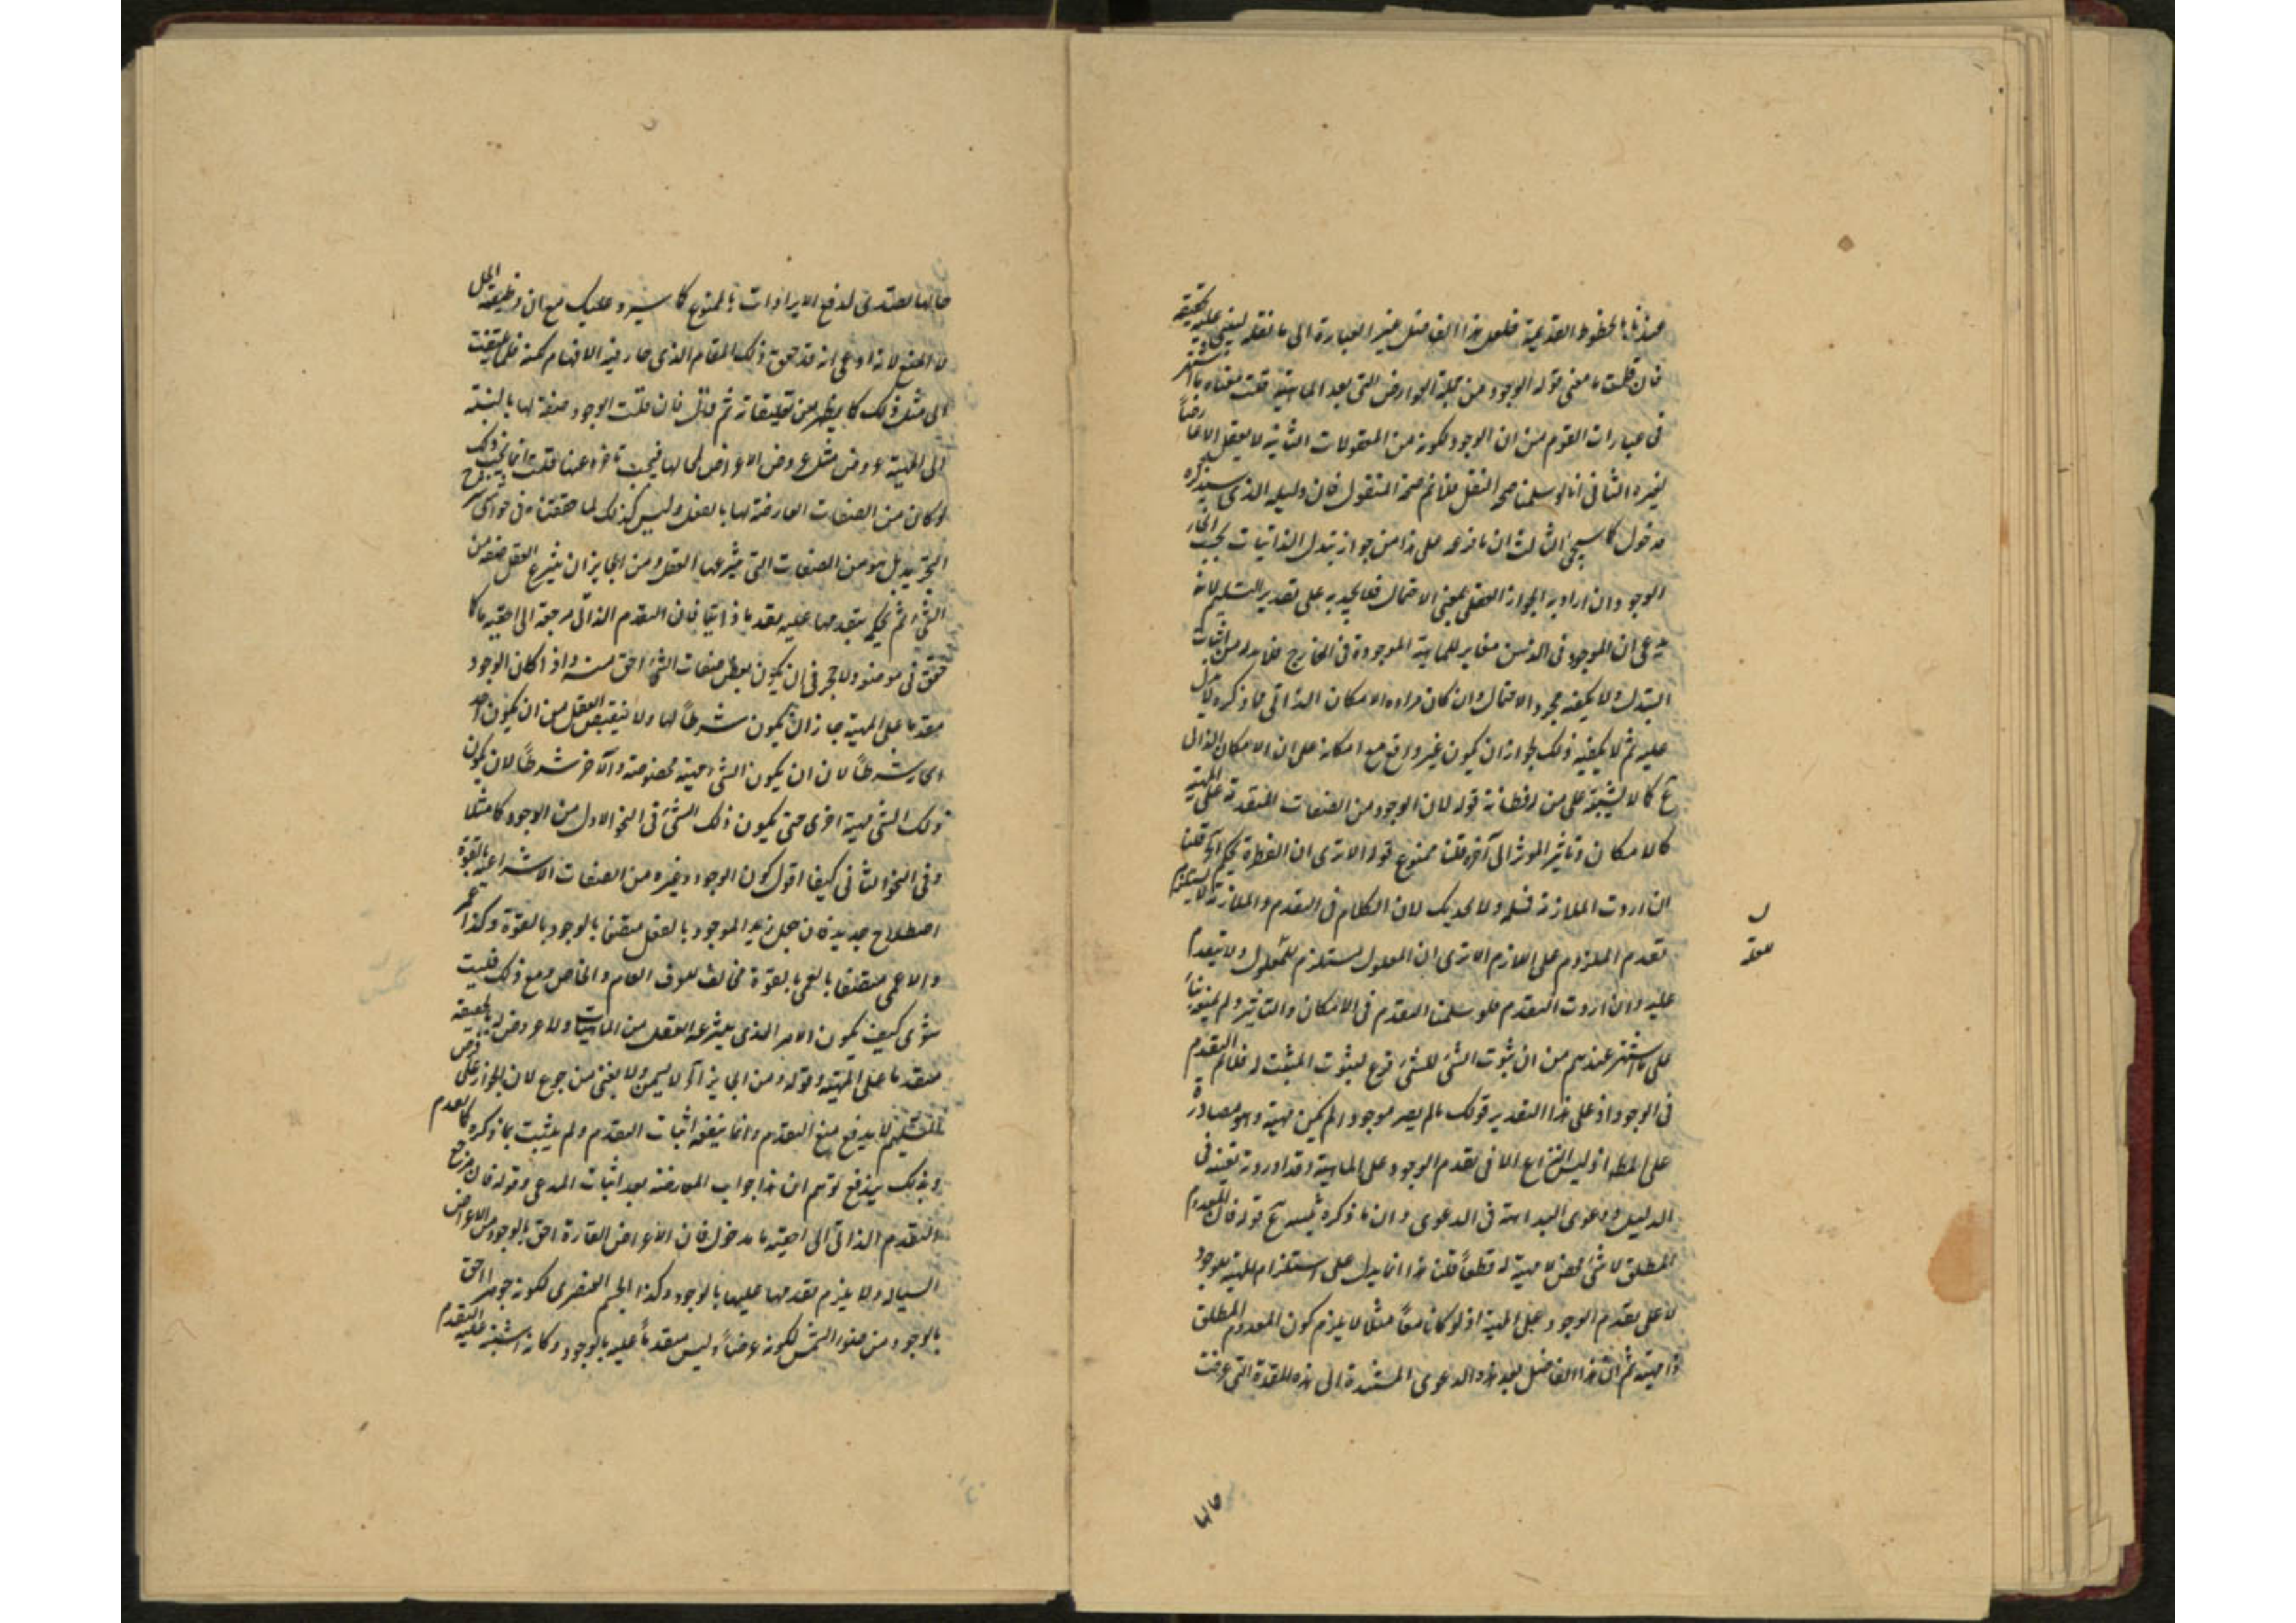 عندنا بالخطوط القديمة فلعل هذا الفاضل غير العبارة الى ما نقله ليبنى عليه تحقيقه
فان قلت ما معنى قوله الوجود من جملة العوارض التى بعد الماهية قلت معناه ما اشتهر
فى عبارات القوم من ان الوجود لكونه من المعقولات الثانية لا يعقل الا عارضاً
لغيره الثانى انا لو سلمنا صحة النقل فلا نم صحة المنقول فان دليله الذى سيذكره
مدخول كما سيجئ الثالث ان ما فرعه على هذا من جواز تبدل الذاتيات بحسب انحاء
الوجود ان اراد به الجواز العقلى بمعنى الاحتمال فلا يجديه على تقدير التسليم لانه
يدعى ان الموجود فى الذهن مغاير للماهية الموجودة فى الخارج فلا بد له من اثبات
التبدل ولا يكفيه مجرد الاحتمال وان كان مراده الامكان الذاتى فما ذكره لا يدل
عليه ثم لا يكفيه ذلك لجواز ان يكون غير واقع مع امكانه على ان الامكان الذاتى
كما لا يشتبه على من له فطانة قوله لان الوجود من الصفات المتقدمة على المهية
كالامكان وتاثير الموثر الى آخره قلنا ممنوع قوله الا ترى ان الفطرة تحكم آه قلنا
ان اردت الملازمة فمسلم ولا يجديك لان الكلام فى التقدم والملازمة لا يستلزم
تقدم الملزوم على اللازم الا ترى ان المعلول مستلزم للمعلول ولا يتقدم
عليه وان اردت التقدم فلو سلمنا التقدم فى الامكان والتاثير ولم نمنعه بناءً
على ما اشتهر عندهم من ان ثبوت الشئ للشئ فرع لثبوت المثبت له فلا نم التقدم
فى الوجود اذ على هذا التقدير قولك ما لم يصر موجودا لم يكن مهية وهو مصادرة
على المط اذ ليس النزاع الا فى تقدم الوجود على الماهية وقد اوردته بعينه فى
الدليل ودعوى البداهة فى الدعوى وان ما ذكره تنبيه قوله فان المعدوم
المطلق لا شئ محض لا مهية له قطعاً قلنا هذا انما يدل على استلزام المهية للوجود
لا على تقدم الوجود على المهية اذ لو كانا معاً مثلا لا يلزم كون المعدوم المطلق
ذا مهية ثم ان هذا الفاضل بعد هذه الدعوى المستندة الى هذه المقدمة التى عرفت
حالها
حالها تصدى لدفع الايرادات بالمنوع كما سيرد عليك مع ان وظيفته الحل
لا المنع لانه ادعى انه قد حقق ذلك المقام الذى حار فيه الافهام لكنه
الى مثل ذلك كما يظهر من تعليقاته ثم قال فان قلت الوجود صفة لها بالنسبة
الى المهية عروض مثل عروض الاعراض لمحالها فيجب تاخره عنها قلت انما يجب ذلك
لو كان من الصفات العارضة لها بالفعل وليس كذلك لما حققناه فى حواشى شرح
التجريد بل هو من الصفات التى ينتزعها العقل ومن الجايز ان ينتزع العقل صفة من
الشئ ثم يحكم بتقدمها عليه تقدما ذاتيا فان التقدم الذاتى مرجعه الى احقية ما كما
حقق فى موضعه ولا حجر فى ان يكون بعض صفات الشئ احق منه واذا كان الوجود
متقدما على المهية جاز ان يكون شرطاً لها ولا ينقبض العقل من ان يكون احد
انحائه شرطاً لان يكون الشئ مهية مخصوصة والآخر شرطاً لان يكون
ذلك الشئ مهية اخرى حتى يكون ذلك الشئ فى النحو الاول من الوجود كما مثلا
وفى النحو الثانى كيفا اقول كون الوجود وغيره من الصفات الانتزاعية بالقوة
اصطلاح جديد فان جعل زيد الموجود بالفعل متصفا بالوجود بالقوة وكذا
والاعمى متصفا بالعمى بالقوة مخالف لعرف العام والخاص ومع ذلك فليت
شعرى كيف يكون الامر الذى ينتزعه العقل من الماهيات ولا عروض له حقيقة
متقدما على المهية وقوله ومن الجايز آه لا يسمن ولا يغنى من جوع لان الجواز على فرض
التسليم لا يدفع منع التقدم وانما ينفعه اثبات التقدم ولم يثبت بما ذكره كما تقدم
وبذلك يندفع توهم ان هذا جواب المعارضة بعد اثبات المدعى وقوله فان مرجع
التقدم الذاتى الى احقية ما مدخول فان الاعراض القارة احق بالوجود من الاعراض
السيالة ولا يلزم تقدمها عليها بالوجود وكذا الجسم العنصرى لكونه جوهرا احق
بالوجود من ضوء الشمس لكونه عرضاً وليس متقدماً عليه بالوجود وكانه اشتبه عليه التقدم